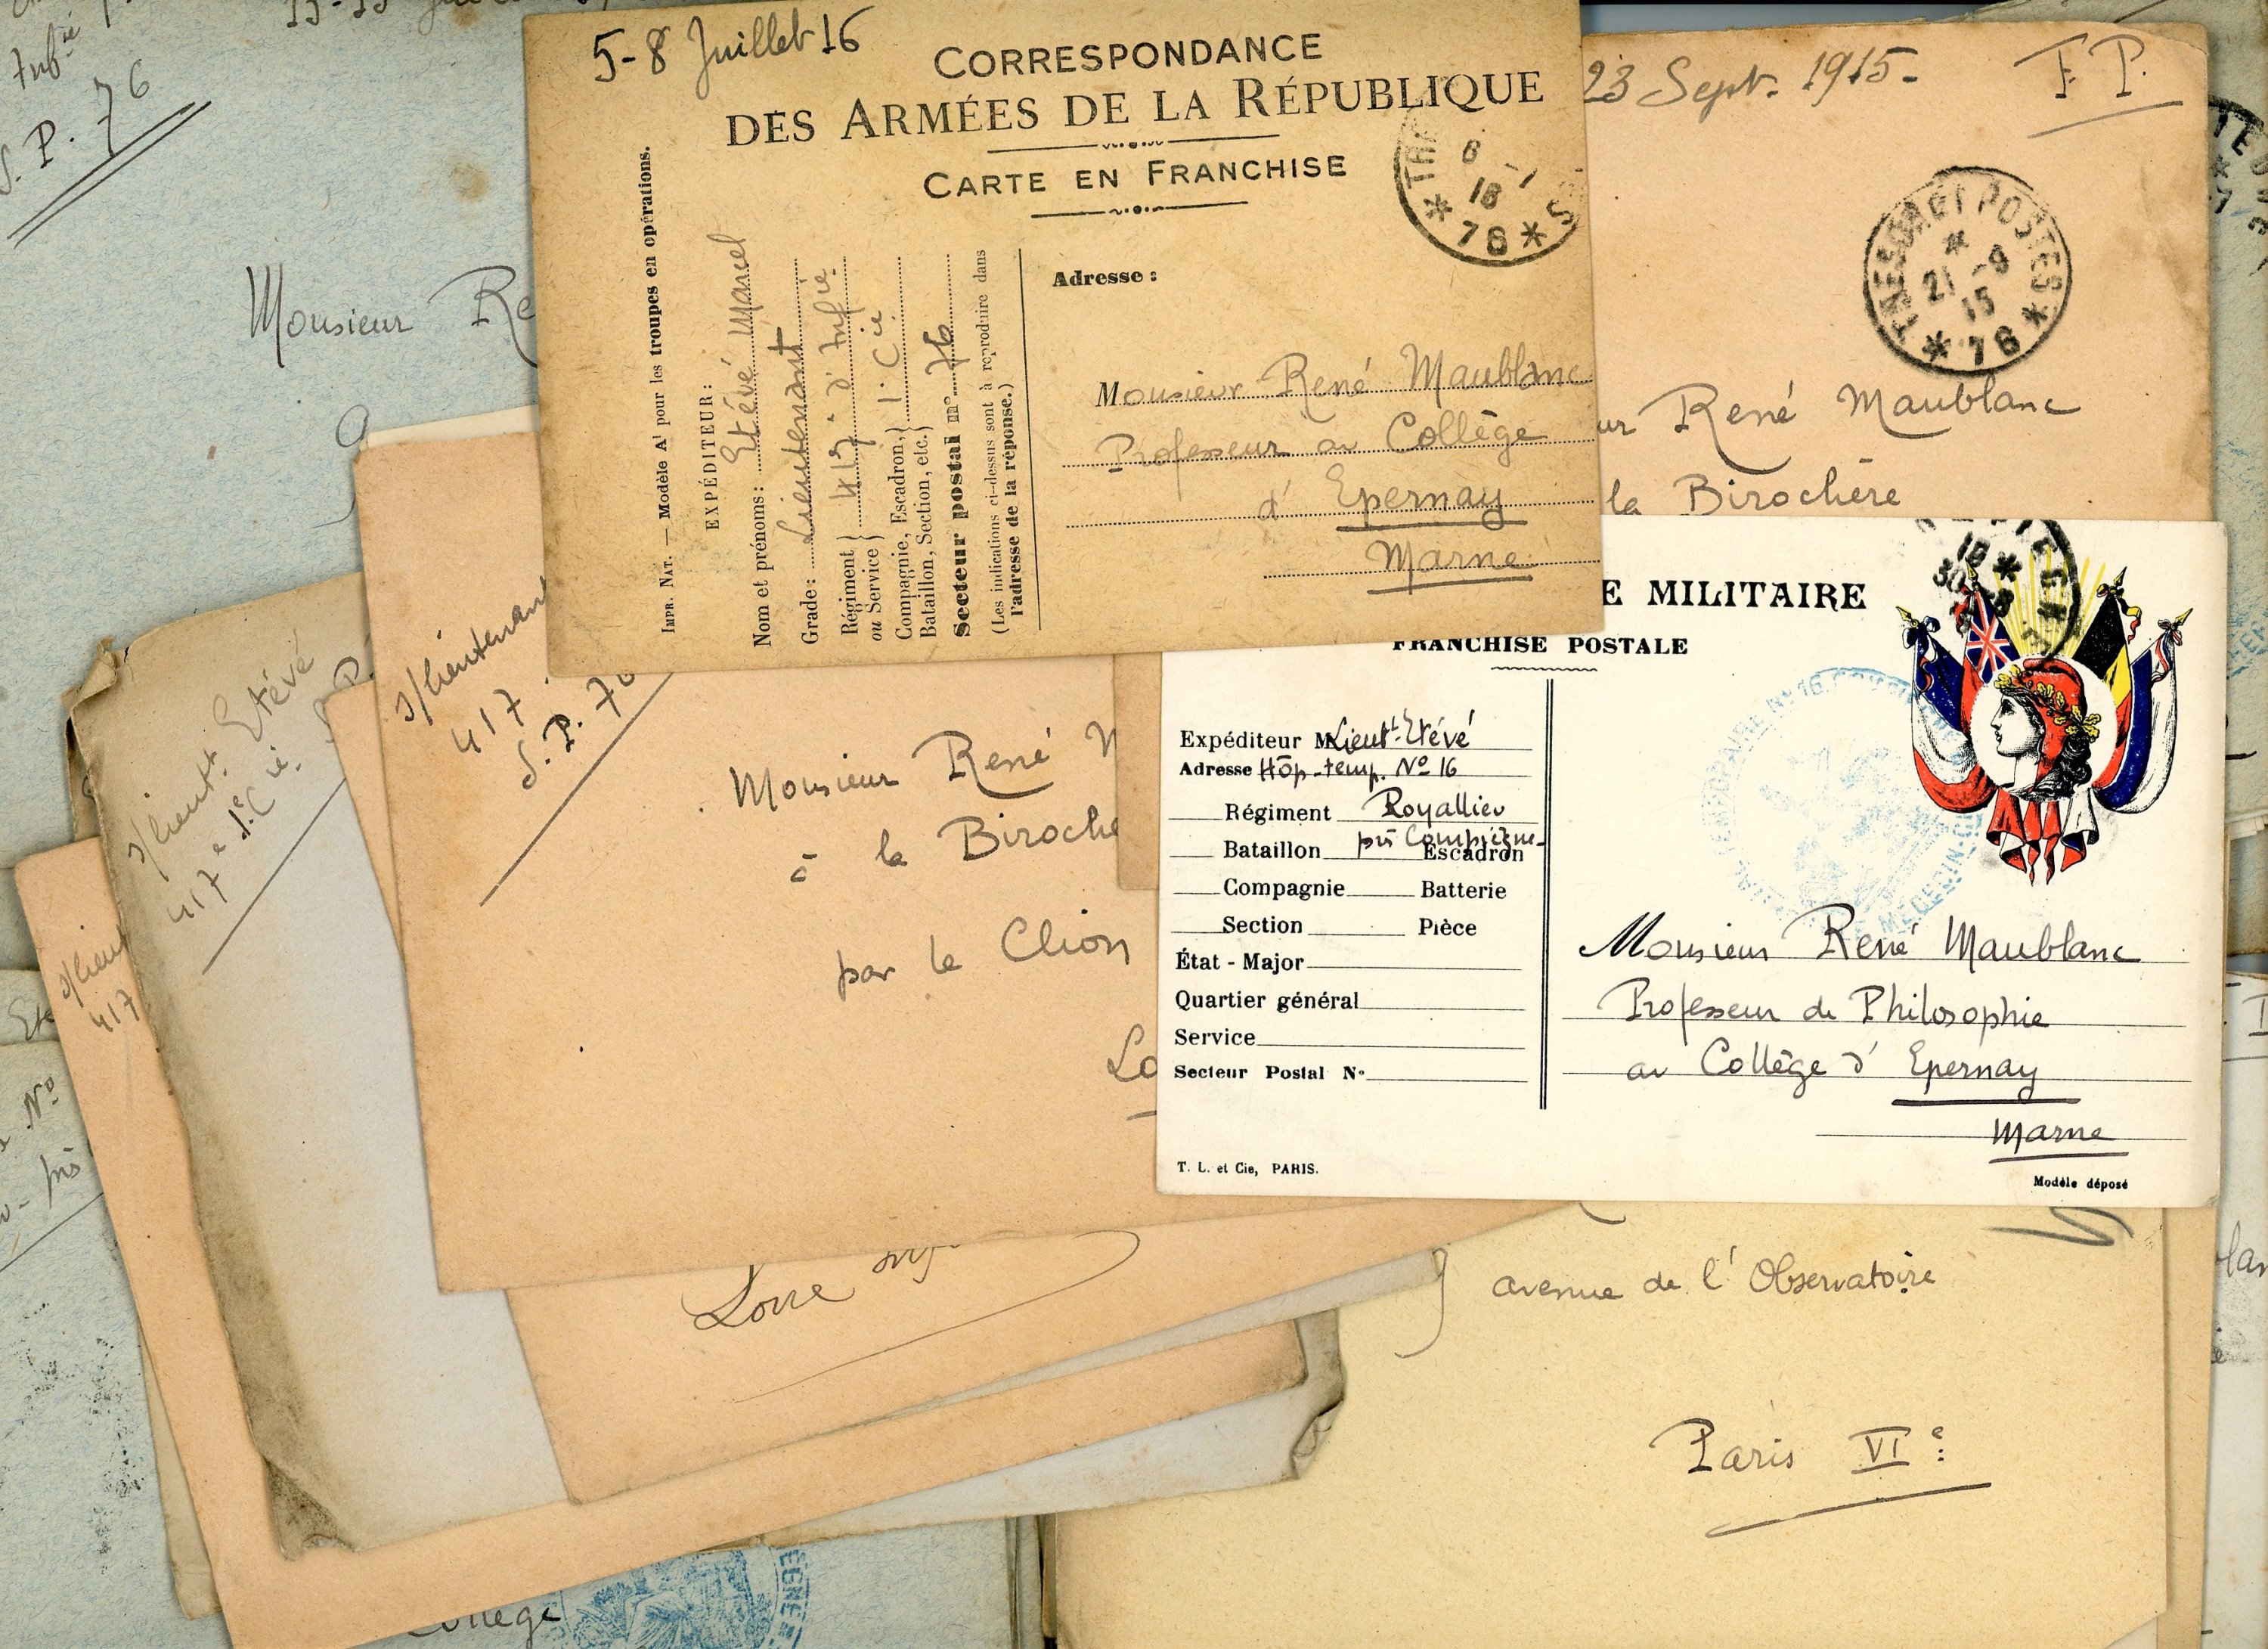 Inf.ie
S. P. 76
Monsieur Re
5-8 Juillet 16
CORRESPONDANCE
DES ARMÉES DE LA RÉPUBLIQUE
CARTE EN FRANCHISE
IMPR. NAT. — Modèle A¹ pour les troupes en opérations.
EXPÉDITEUR :
Nom et prénoms : Etévé Marcel
Grade : Lieutenant
Régiment
ou Service } 417e d'Infie
Compagnie, Escadron,
Bataillon, Section, etc. } 1e Cie
Secteur postal n° 76
(Les indications ci-dessus sont à reproduire dans
l'adresse de la réponse.)
Adresse :
Monsieur René Maublanc
Professeur au Collège
d'Epernay
Marne
23 Sept. 1915-
F. P.
TRESOR ET POSTES
21 -9
15
* 76 *
ur René Maublanc
la Birochère
s/lieutt Etévé
417e 1e Cie
s/lieutenant
417
S. P. 76
Monsieur René M
à la Biroche
par le Clion
Lo
s/lieut
417
E MILITAIRE
FRANCHISE POSTALE
Expéditeur M Lieutt Etévé
Adresse Hôp. temp. No 16
Régiment Royallieu
près Compiègne
Bataillon Escadron
Compagnie Batterie
Section Pièce
État - Major
Quartier général
Service
Secteur Postal N°
T. L. et Cie, PARIS.
Monsieur René Maublanc
Professeur de Philosophie
au Collège d'Epernay
Marne
Modèle déposé
Loire Inf
9 avenue de l'Observatoire
Paris VIe
No
près
Collège